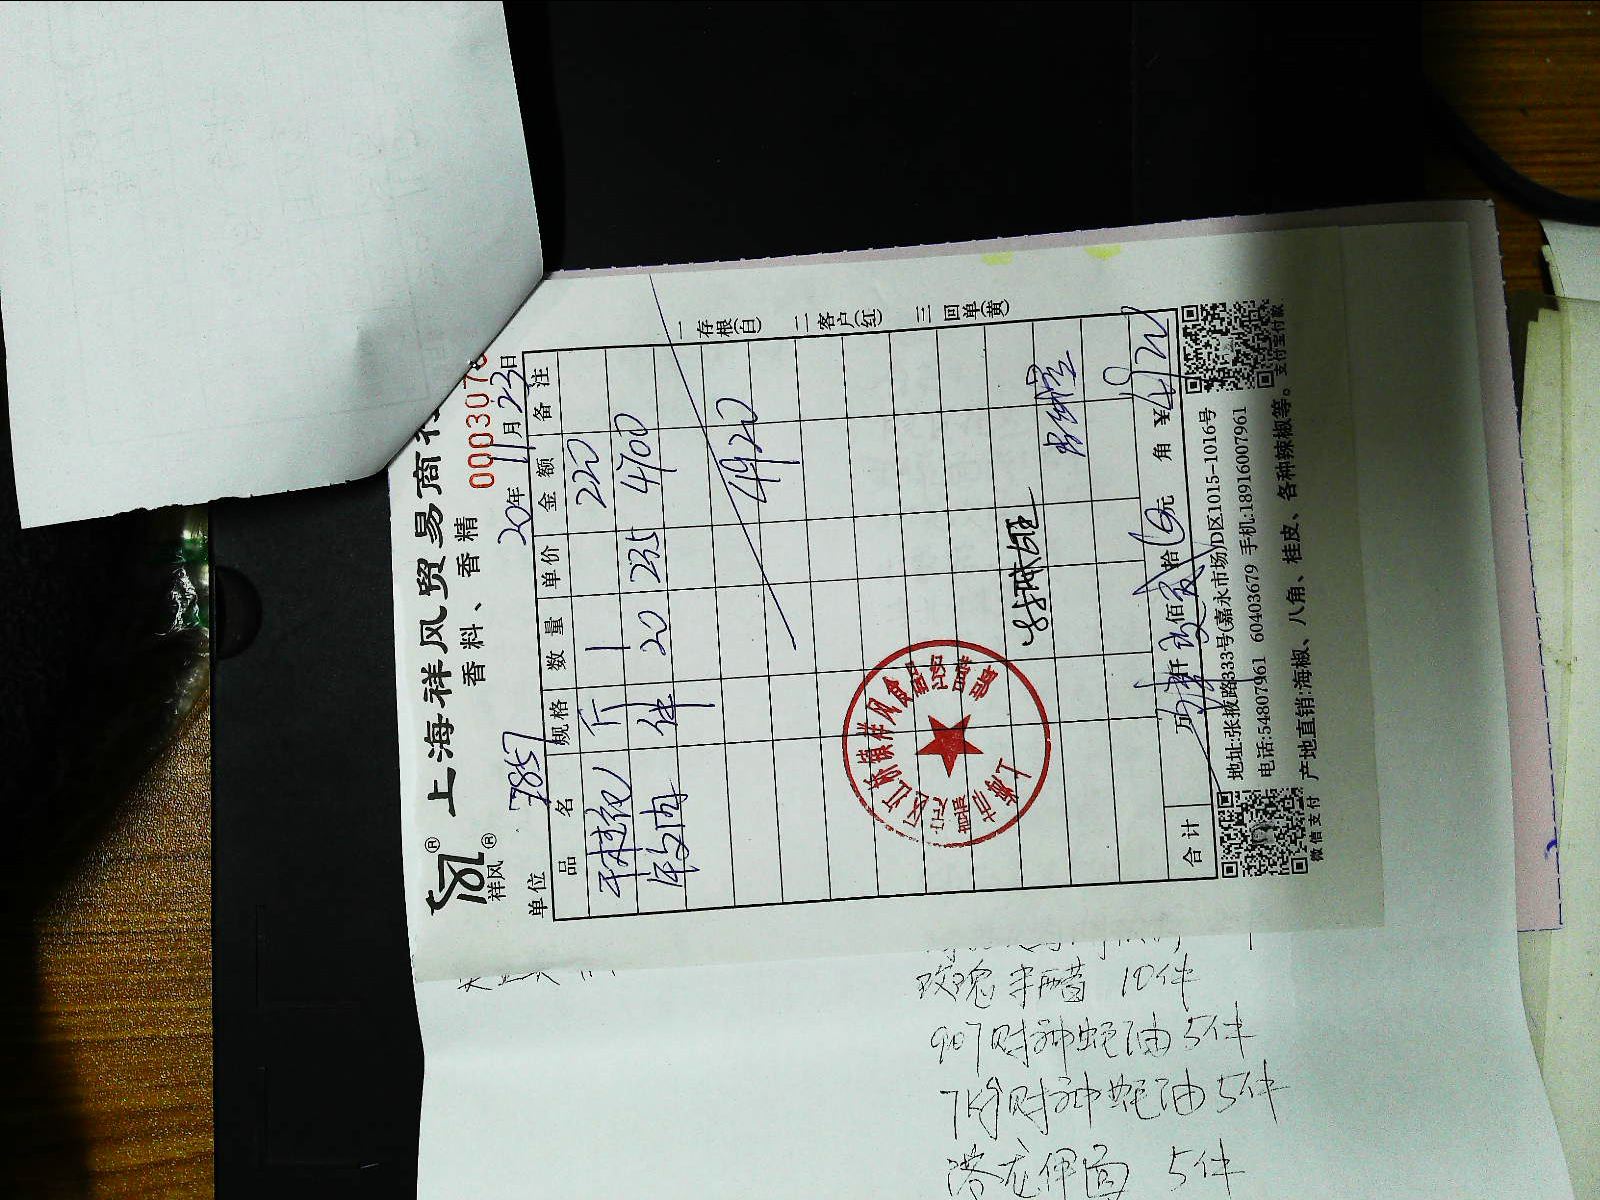 上海祥风贸易商
香料、香精
祥风
000307
单位 7857 20年11月23日
品名 规格 数量 单价 金额 备注
斤 1 220
件 20 235 4700
4920
一存根(白) 二客户(红) 三回单(黄)
合计 万 仟 佰 拾 元 角 ¥4920
地址:张掖路333号(嘉永市场)D区1015-1016号
电话:54807961 60403679 手机:18916007961
产地直销:海椒、八角、桂皮、各种辣椒等。
微信支付
支付宝付款
玫瑰米醋 10件
907财神蚝油 5件
7kg财神蚝油 5件
潜龙伊面 5件